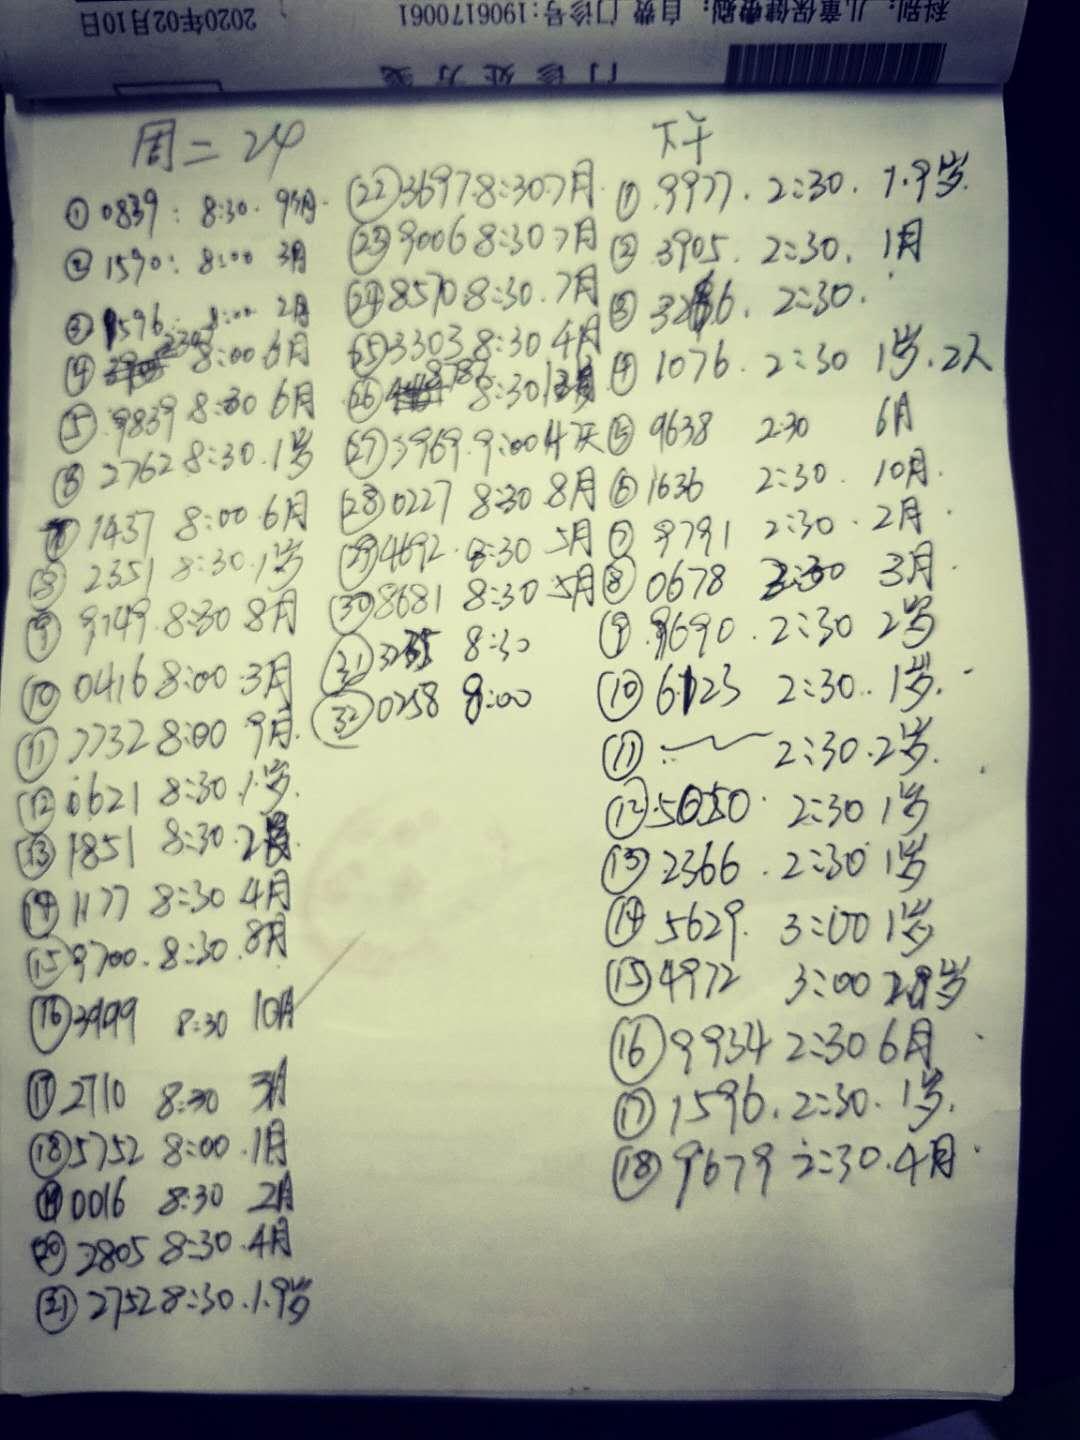 科别: 儿童保健 费别: 自费 门诊号: 1906170061
2020年02月10日
门诊处方笺
周二 24
① 0839: 8:30. 9月.
② 1590: 8:00 3月
③ 1596 8:00 2月
④ 8:00 6月
⑤ 9839 8:30 6月
⑥ 2762 8:30. 1岁
⑦ 1437 8:00 6月
⑧ 2351 8:30. 1岁
⑨ 9149. 8:30 8月
⑩ 0416 8:00 3月
⑪ 7732 8:00 9月.
⑫ 0621 8:30 1岁.
⑬ 1851 8:30. 2
⑭ 1177 8:30 4月
⑮ 9700. 8:30. 8月
⑯ 3999 8:30 10月
⑰ 2710 8:30 3月
⑱ 5752 8:00. 1月
⑲ 0016 8:30 2月
⑳ 2805 8:30. 4月
㉑ 2752 8:30. 1.9岁
㉒ 3697 8:30 7月.
㉓ 9006 8:30 7月
㉔ 8570 8:30. 7月
㉕ 3303 8:30 4月
㉖ 8:30
㉗ 3969. 9:00 4天
㉘ 0227 8:30 8月
㉙ 4692. 8:30 5月
㉚ 8681 8:30 5月
㉛ 8:30
㉜ 0258 8:00
下午
① 9977. 2:30. 1.9岁.
② 3905. 2:30. 1月
③ 2:30.
④ 1076. 2:30 1岁. 2天
⑤ 9638 2:30 6月
⑥ 1636 2:30. 10月.
⑦ 9791 2:30. 2月.
⑧ 0678 2:30 3月.
⑨ 9690. 2:30 2岁
⑩ 6123 2:30.. 1岁.
⑪ 2:30. 2岁.
⑫ 5050. 2:30 1岁
⑬ 2366. 2:30 1岁
⑭ 5629. 3:00 1岁
⑮ 4972 3:00 2.9岁
⑯ 9934 2:30 6月
⑰ 1596. 2:30. 1岁.
⑱ 9679 2:30. 4月.